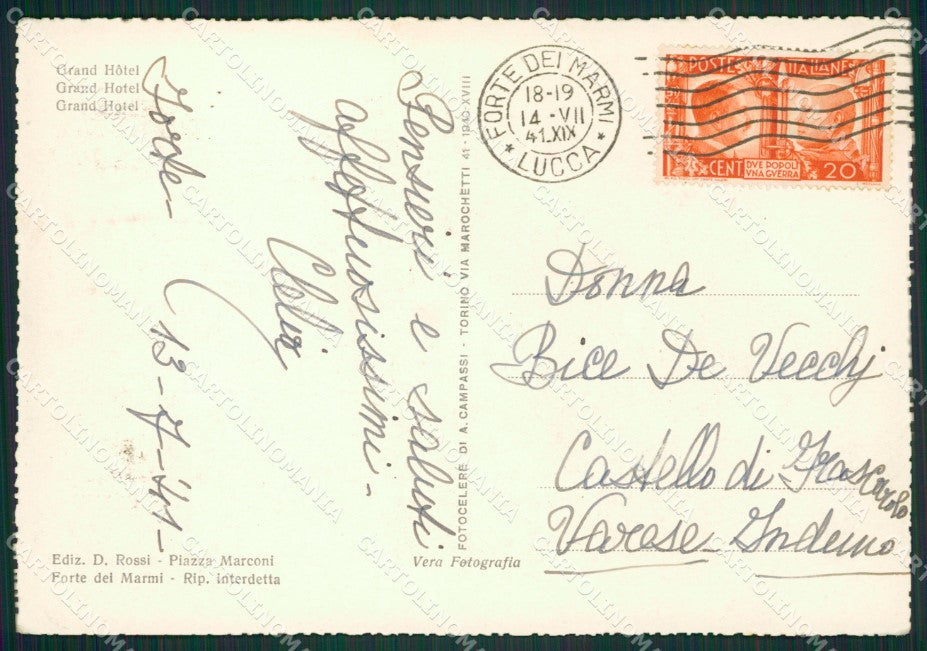 Grand Hôtel
Grand Hotel
Grand Hotel
13-7-'41-
Pensieri e saluti
affettuosissimi-
Ediz. D. Rossi - Piazza Marconi
Forte dei Marmi - Rip. interdetta
FOTOCELERE DI A. CAMPASSI - TORINO VIA MAROCHETTI 41 - 1940-XVIII
Vera Fotografia
FORTE DEI MARMI
18-19
14 - VII
41.XIX
* LUCCA *
POSTE ITALIANE
CENT 20
DVE POPOLI
VNA GVERRA
Donna
Bice De Vecchj
Castello di Frascarolo
Varese Induno
CARTOLINOMANIA